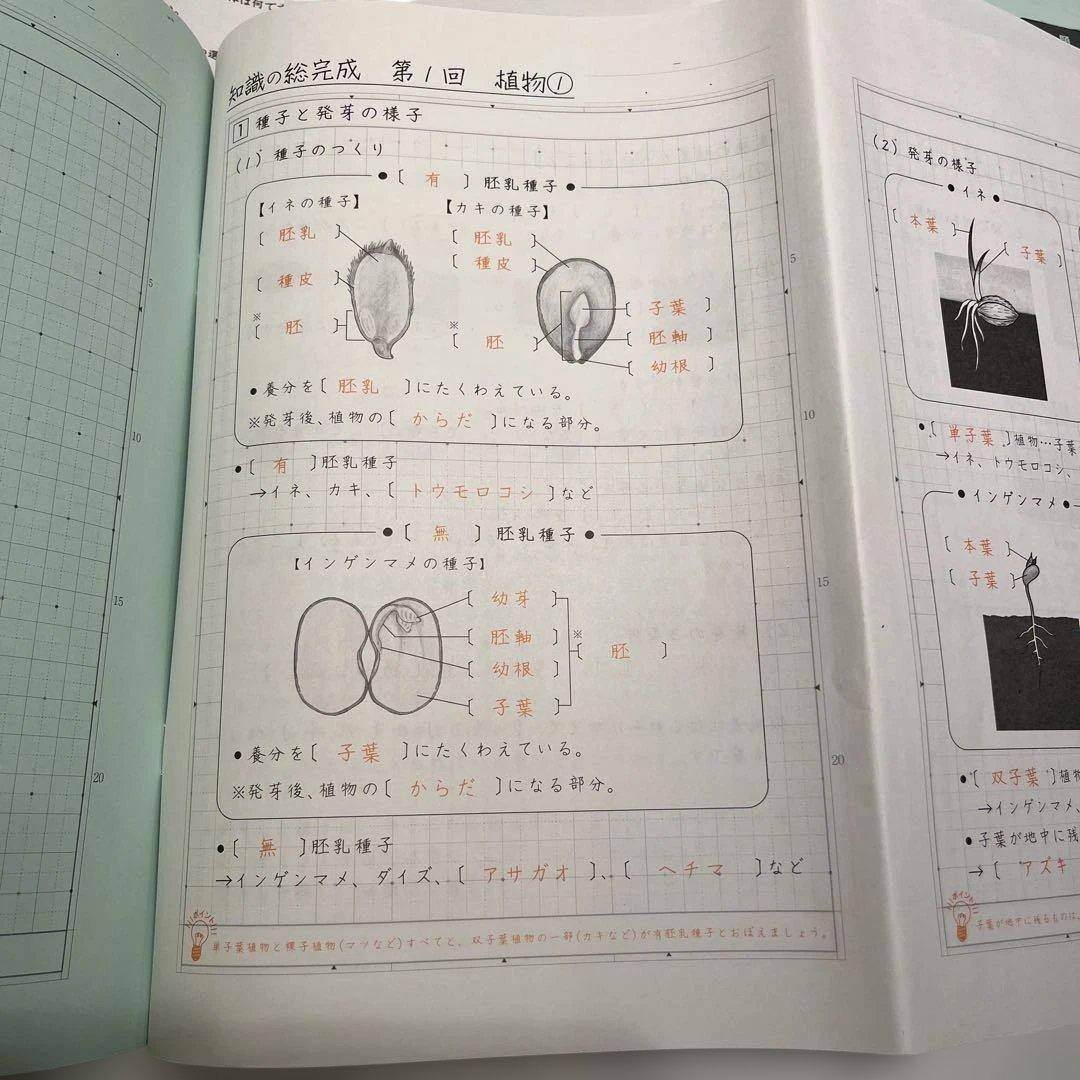 知識の総完成 第1回 植物①
1 種子と発芽の様子
(1) 種子のつくり
●〔 有 〕胚乳種子●
【イネの種子】
〔 胚乳 〕
〔 種皮 〕
※
〔 胚 〕
【カキの種子】
〔 胚乳 〕
〔 種皮 〕
※
〔 胚 〕
〔 子葉 〕
〔 胚軸 〕
〔 幼根 〕
●養分を〔 胚乳 〕にたくわえている。
※発芽後、植物の〔 からだ 〕になる部分。
●〔 有 〕胚乳種子
→イネ、カキ、〔 トウモロコシ 〕など
●〔 無 〕胚乳種子●
【インゲンマメの種子】
〔 幼芽 〕
〔 胚軸 〕
〔 幼根 〕
〔 子葉 〕
※
〔 胚 〕
●養分を〔 子葉 〕にたくわえている。
※発芽後、植物の〔 からだ 〕になる部分。
●〔 無 〕胚乳種子
→インゲンマメ、ダイズ、〔 アサガオ 〕、〔 ヘチマ 〕など
ポイント
単子葉植物と裸子植物(マツなど)すべてと、双子葉植物の一部(カキなど)が有胚乳種子とおぼえましょう。
5
10
15
20
10
15
20
5
(2) 発芽の様子
●イネ●
〔 本葉 〕
〔 子葉 〕
●〔 単子葉 〕植物…子葉
→イネ、トウモロコシ、
●インゲンマメ●
〔 本葉 〕
〔 子葉 〕
●〔 双子葉 〕植物
→インゲンマメ、
●子葉が地中に残
→〔 アズキ
ポイント
子葉が地中に残るものは、